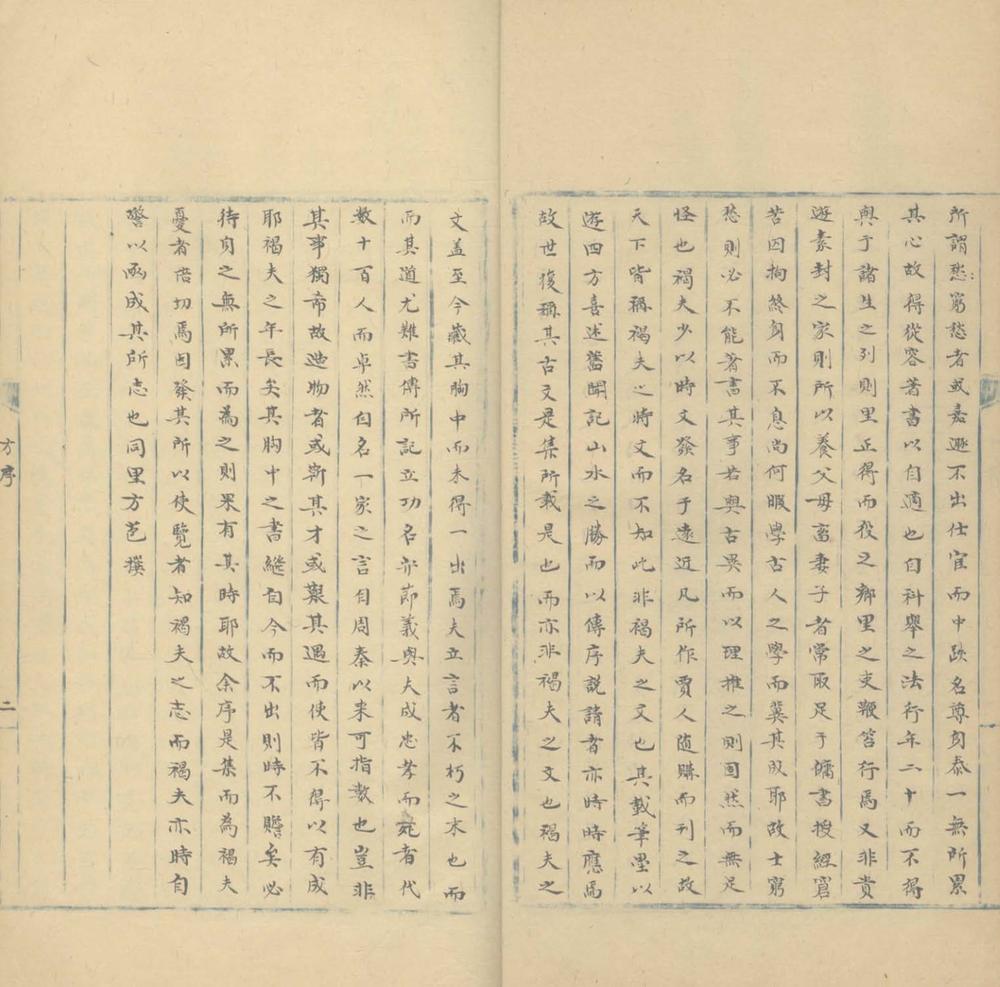 所謂愁窮愁者或嘉遯不出仕宦而中跌名尊身泰一無所累
其心故得從容著書以自適也自科舉之法行年二十而不得
與于諸生之列則里正得而役之鄉里之吏鞭笞行焉又非貴
遊素封之家則所以養父母畜妻子者常取足于傭書授經窘
苦因拘終身而不息尚何暇學古人之學而冀其成耶故士窮
愁則必不能著書其事若與古異而以理推之則固然而無足
怪也褐夫少以時文發名于遠近凡所作賈人随購而刊之故
天下皆稱褐夫之時文而不知此非褐夫之文也其載筆墨以
遊四方喜述舊聞記山水之勝而以傳序說請者亦時時應焉
故世復稱其古文是集所載是也而亦非褐夫之文也褐夫之
文盖至今藏其胸中而未得一出焉夫立言者不朽之末也而
而其道尤難書傳所記立功名亦節義與夫成忠孝而死者代
数十百人而卓然自名一家之言自周秦以来可指数也豈非
其事獨希故造物者或靳其才或艱其遇而使皆不得以有成
耶褐夫之年長矣其胸中之書縱自今而不出則時不贍矣必
待身之無所累而為之則果有其時耶故余序是集而為褐夫
憂者倍切焉因發其所以使覽者知褐夫之志而褐夫亦時自
警以函成其所志也同里方苞撰
方序
二